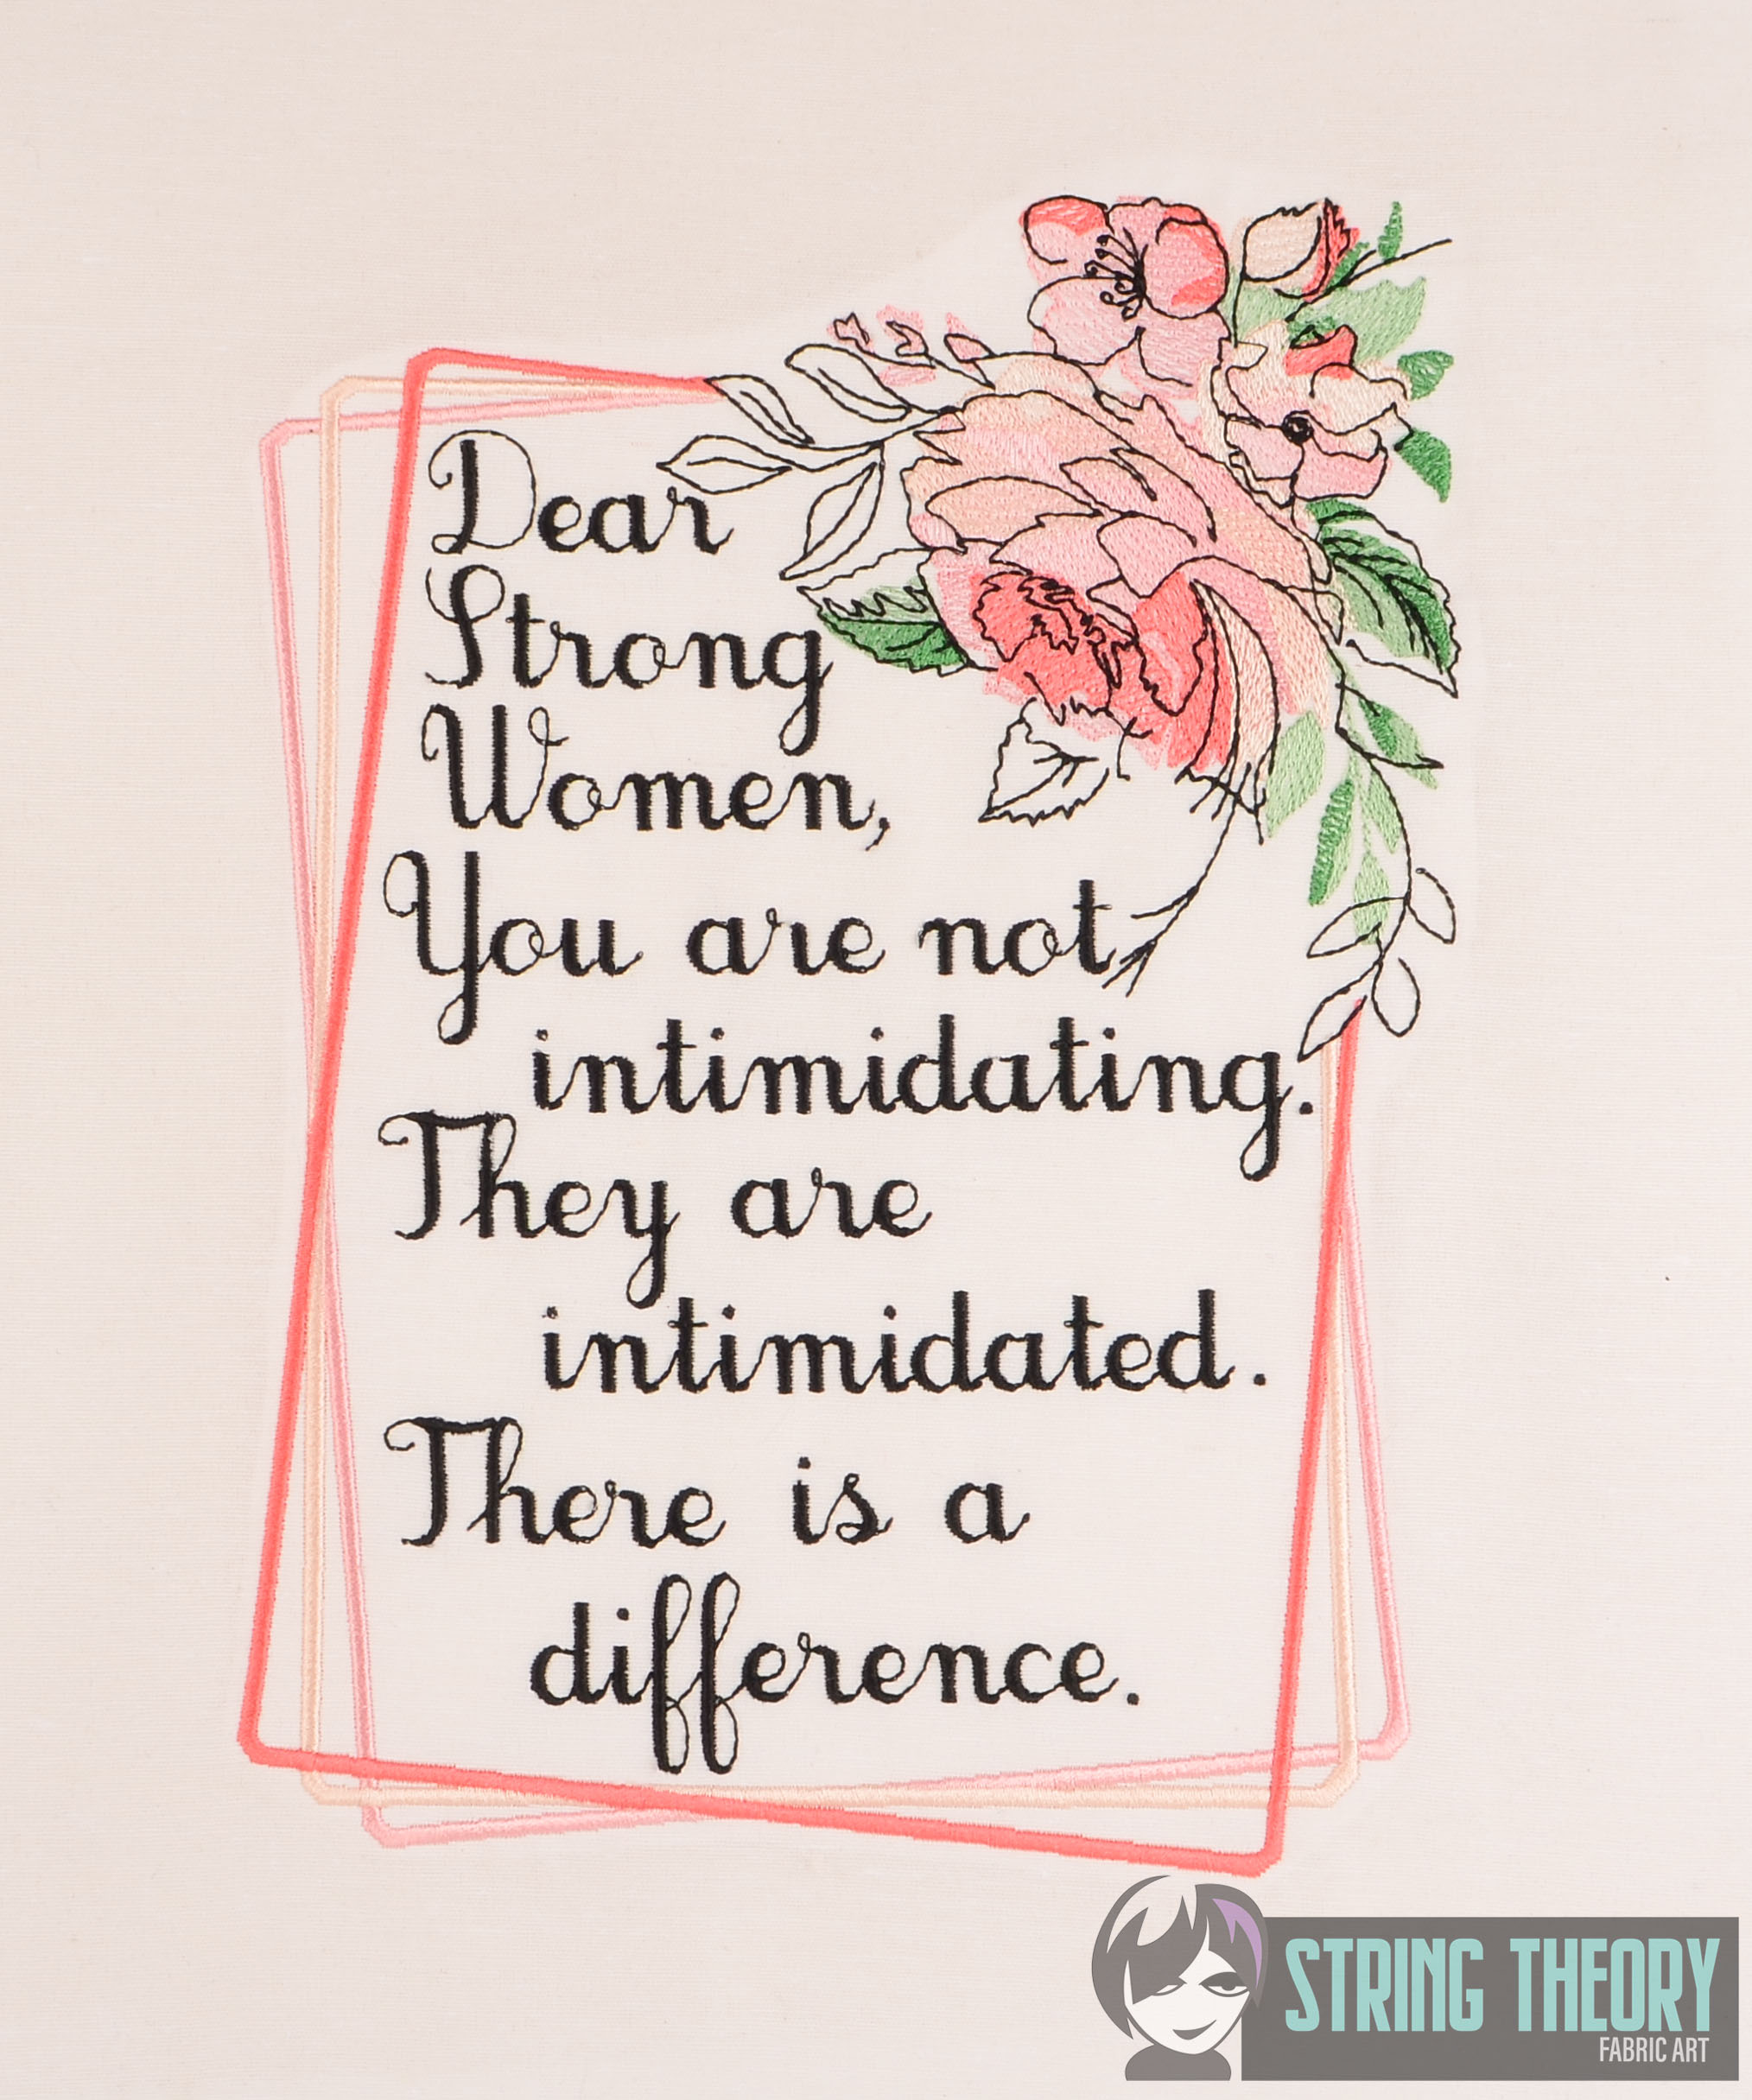 Dear
Strong
Women,
You are not
intimidating.
They are
intimidated.
There is a
difference.
STRING THEORY
FABRIC ART